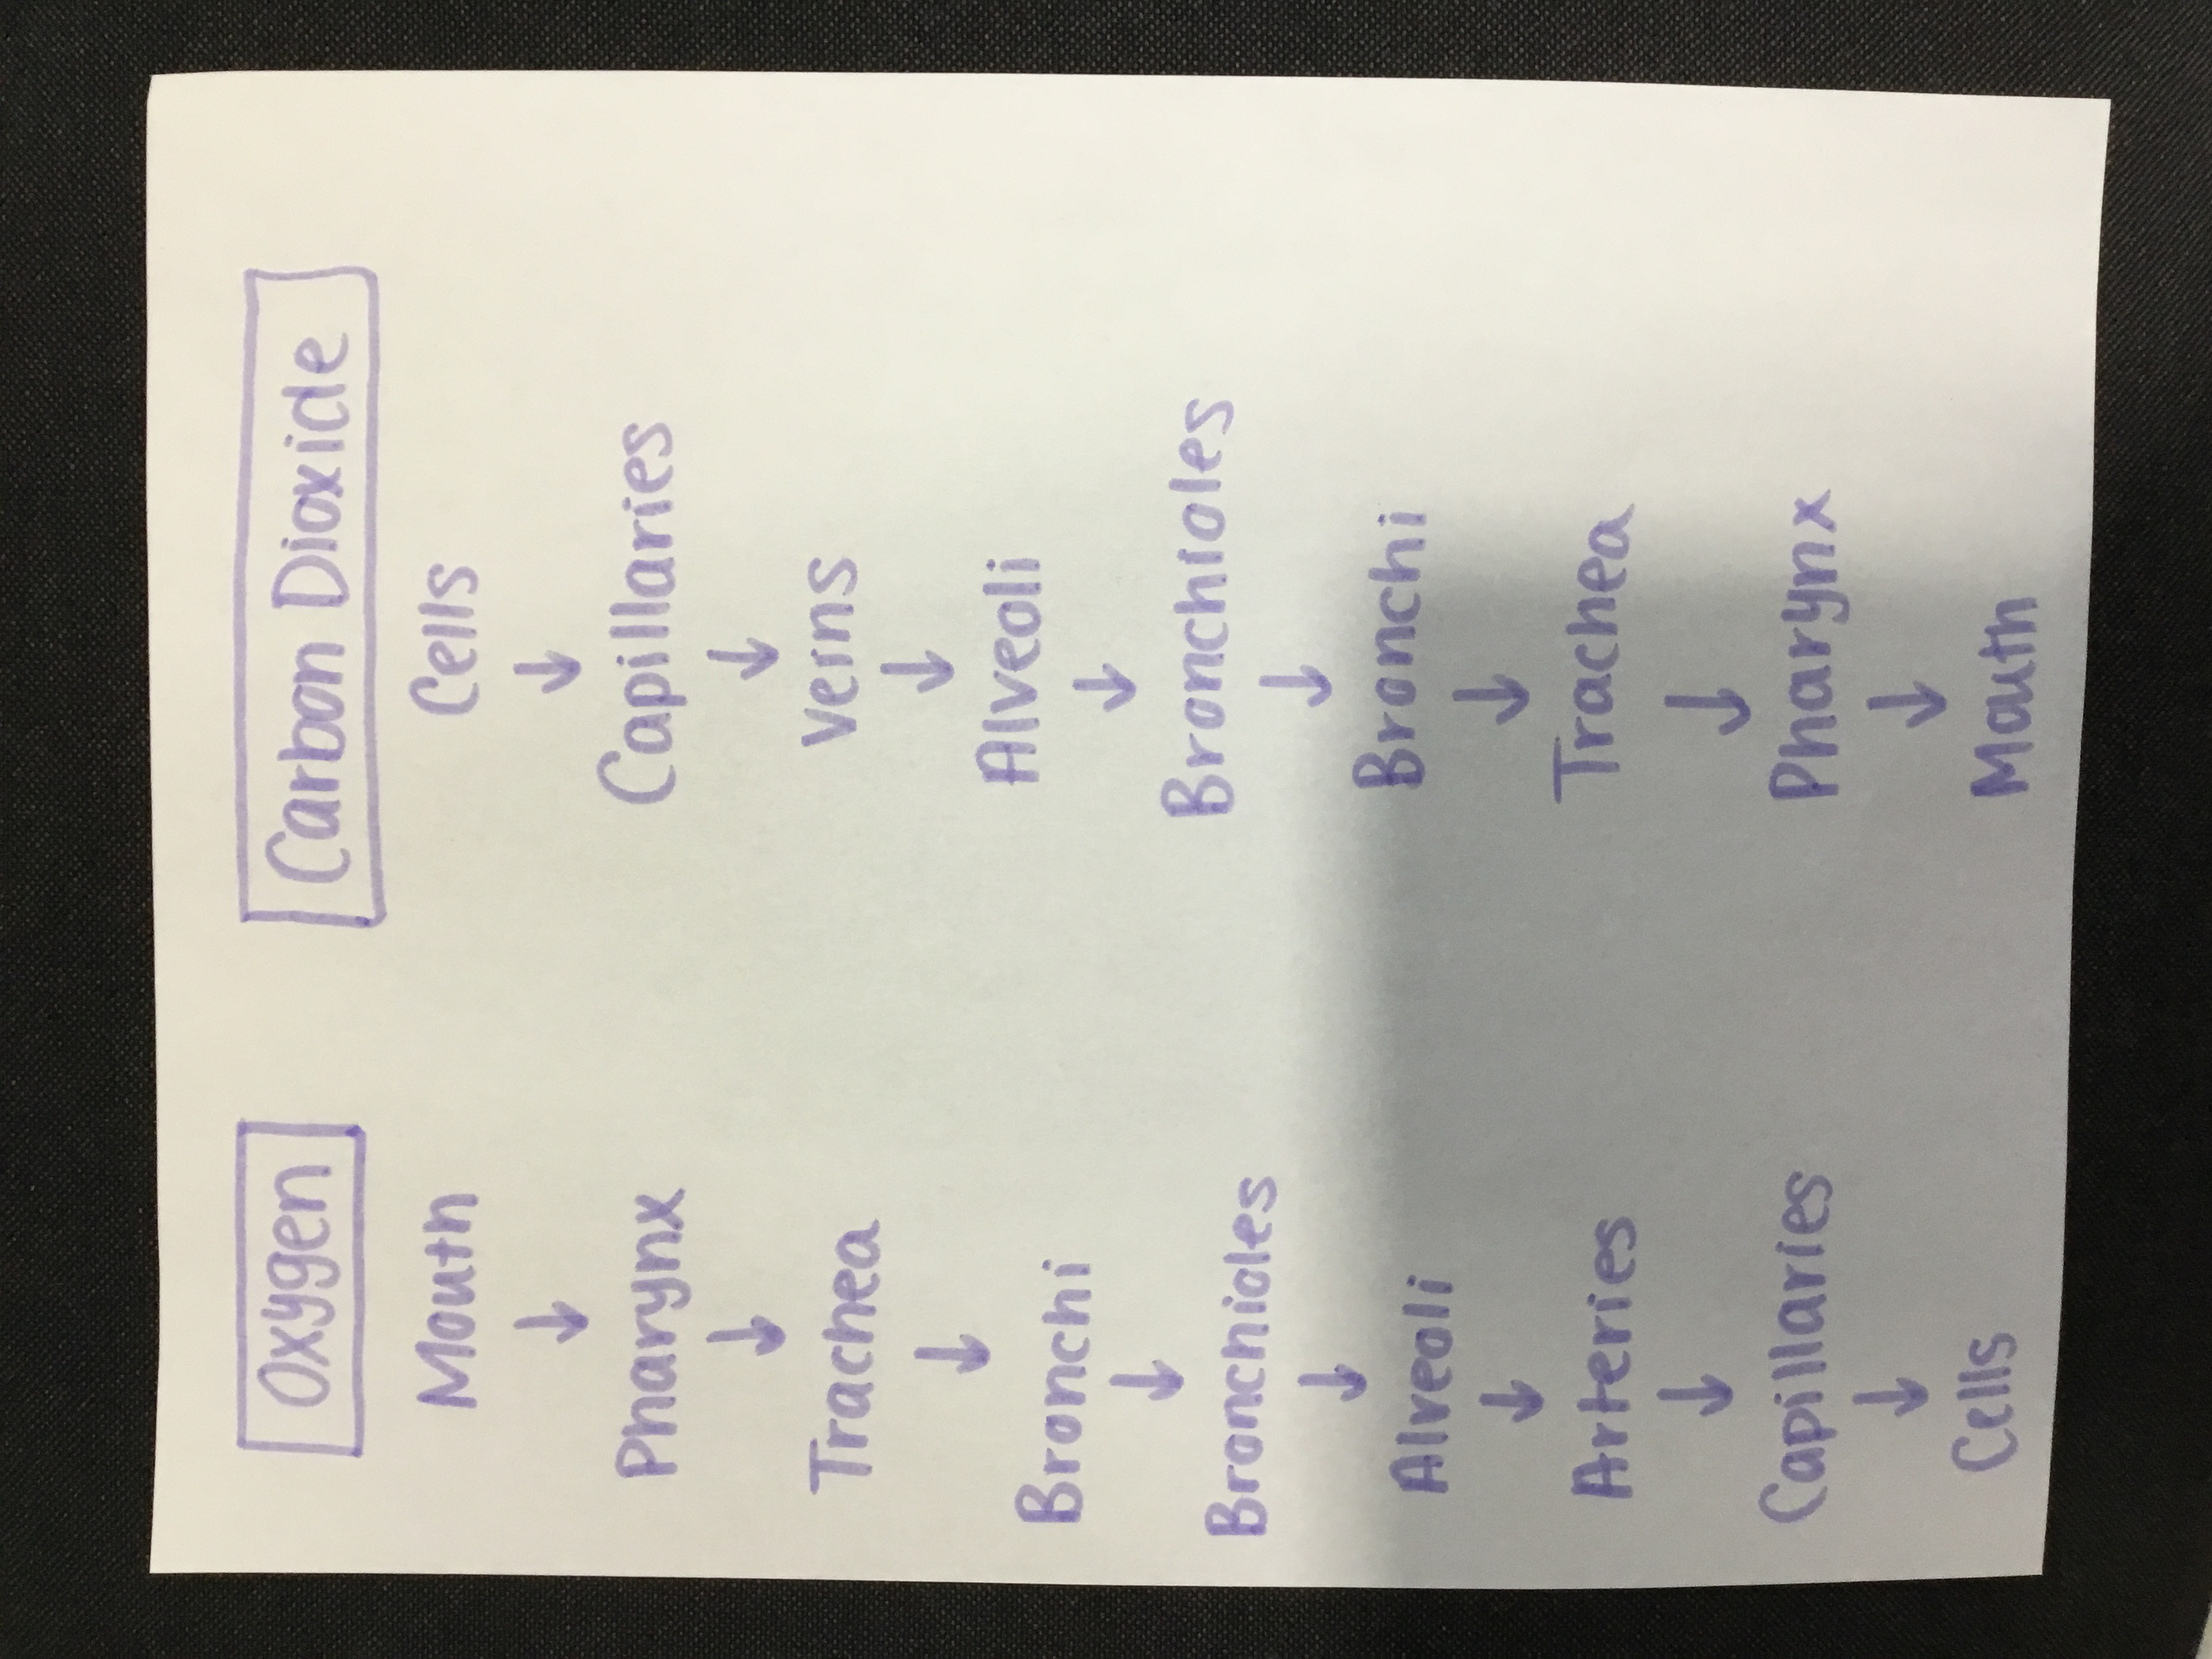 Oxygen
Mouth
↓
Pharynx
↓
Trachea
↓
Bronchi
↓
Bronchioles
↓
Alveoli
↓
Arteries
↓
Capillaries
↓
Cells
Carbon Dioxide
Cells
↓
Capillaries
↓
Veins
↓
Alveoli
↓
Bronchioles
↓
Bronchi
↓
Trachea
↓
Pharynx
↓
Mouth